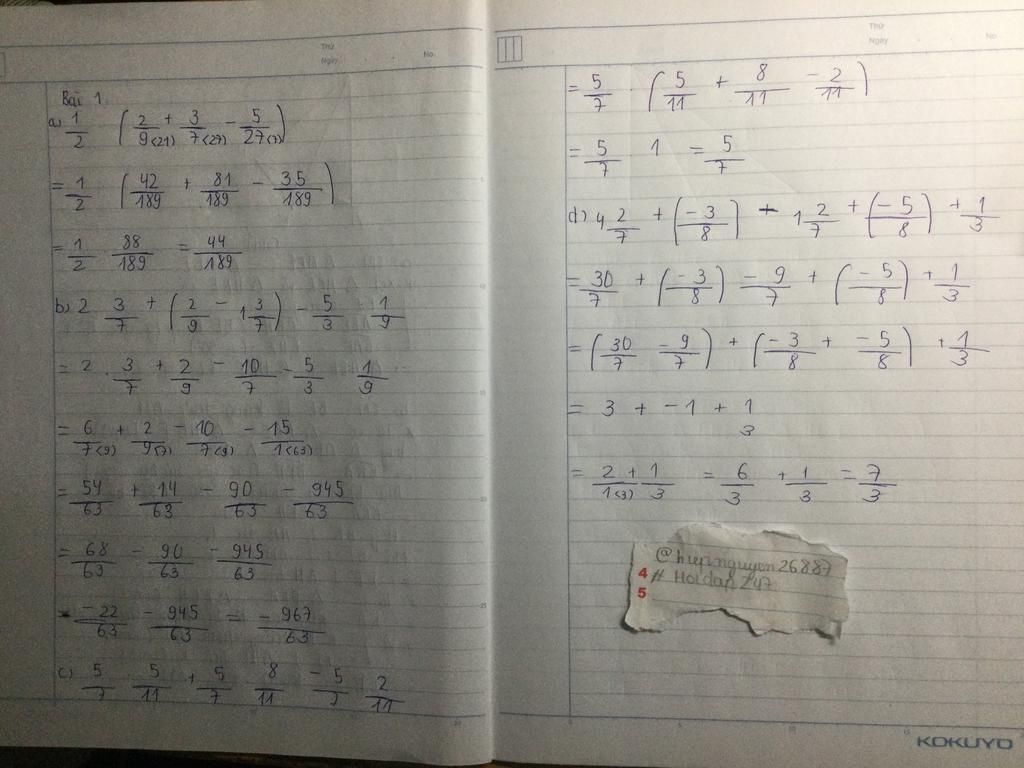 Thứ
Ngày
No.
Bài 1
a) 1/2 (2/9(21) + 3/7(27) - 5/27(7))
= 1/2 (42/189 + 81/189 - 35/189)
= 1/2 88/189 = 44/189
b) 2 3/7 + (2/9 - 1 3/7) - 5/3 1/9
= 2 . 3/7 + 2/9 - 10/7 - 5/3 1/9
= 6/7(9) + 2/9(7) - 10/7(9) - 15/1(63)
= 54/63 + 14/63 - 90/63 - 945/63
= 68/63 - 90/63 - 945/63
= -22/63 - 945/63 = -967/63
c) 5/7 5/11 + 5/7 8/11 - 5/7 2/11
Thứ
Ngày
No.
= 5/7 . (5/11 + 8/11 - 2/11)
= 5/7 . 1 = 5/7
d) 4 2/7 + (-3/8) - 1 2/7 + (-5/8) + 1/3
= 30/7 + (-3/8) - 9/7 + (-5/8) + 1/3
= (30/7 - 9/7) + (-3/8 + -5/8) + 1/3
= 3 + -1 + 1/3
= 2/1(3) + 1/3 = 6/3 + 1/3 = 7/3
@hiepnguyen26887
4 # Hoidap247
5
KOKUYO